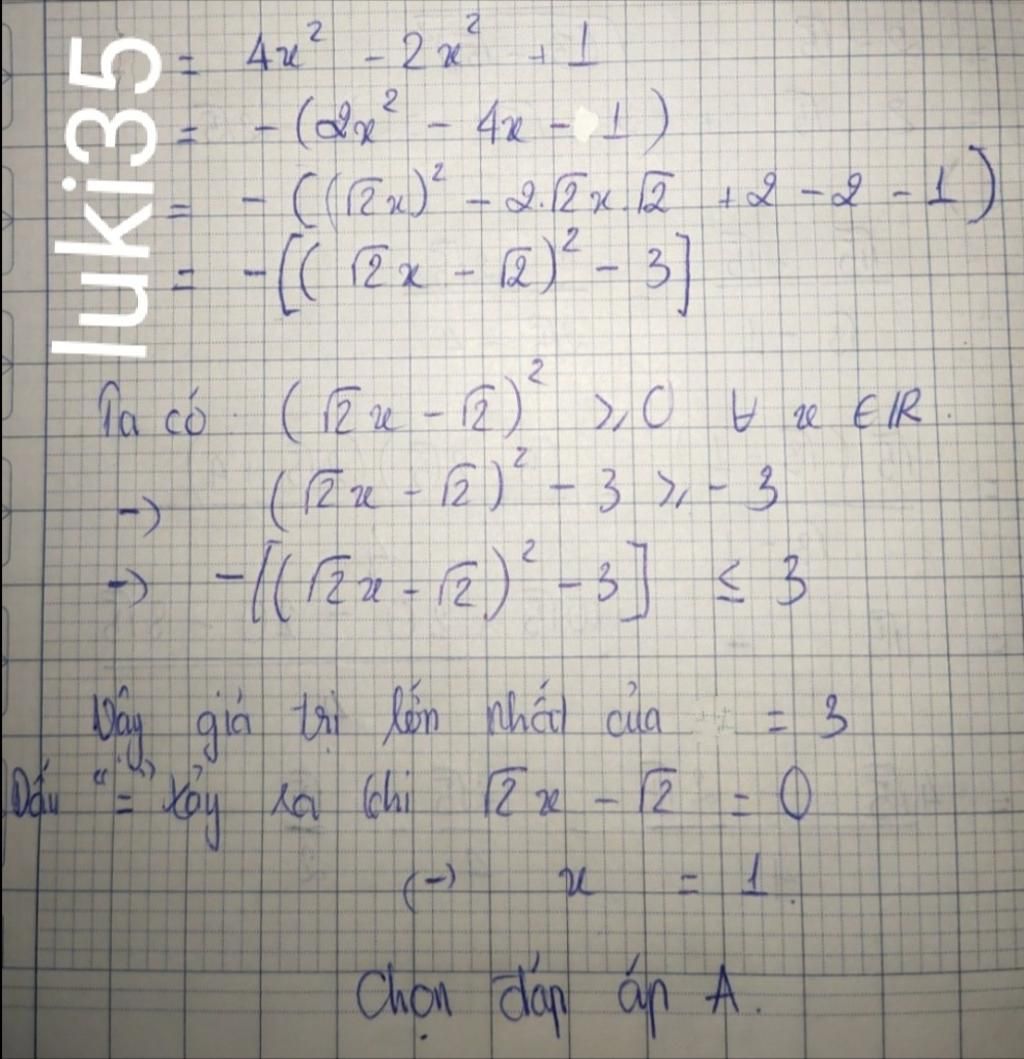 luki35
= 4x² - 2x² + 1
= -(2x² - 4x - 1)
= -((√2x)² - 2.√2x.√2 + 2 - 2 - 1)
= -[(√2x - √2)² - 3]
Ta có (√2x - √2)² ≥ 0 ∀ x ∈ R.
→ (√2x - √2)² - 3 ≥ - 3
→ -[(√2x - √2)² - 3] ≤ 3
Vậy giá trị lớn nhất của = 3
Dấu "=" xảy ra khi √2x - √2 = 0
(→) x = 1.
Chọn đáp áp A.